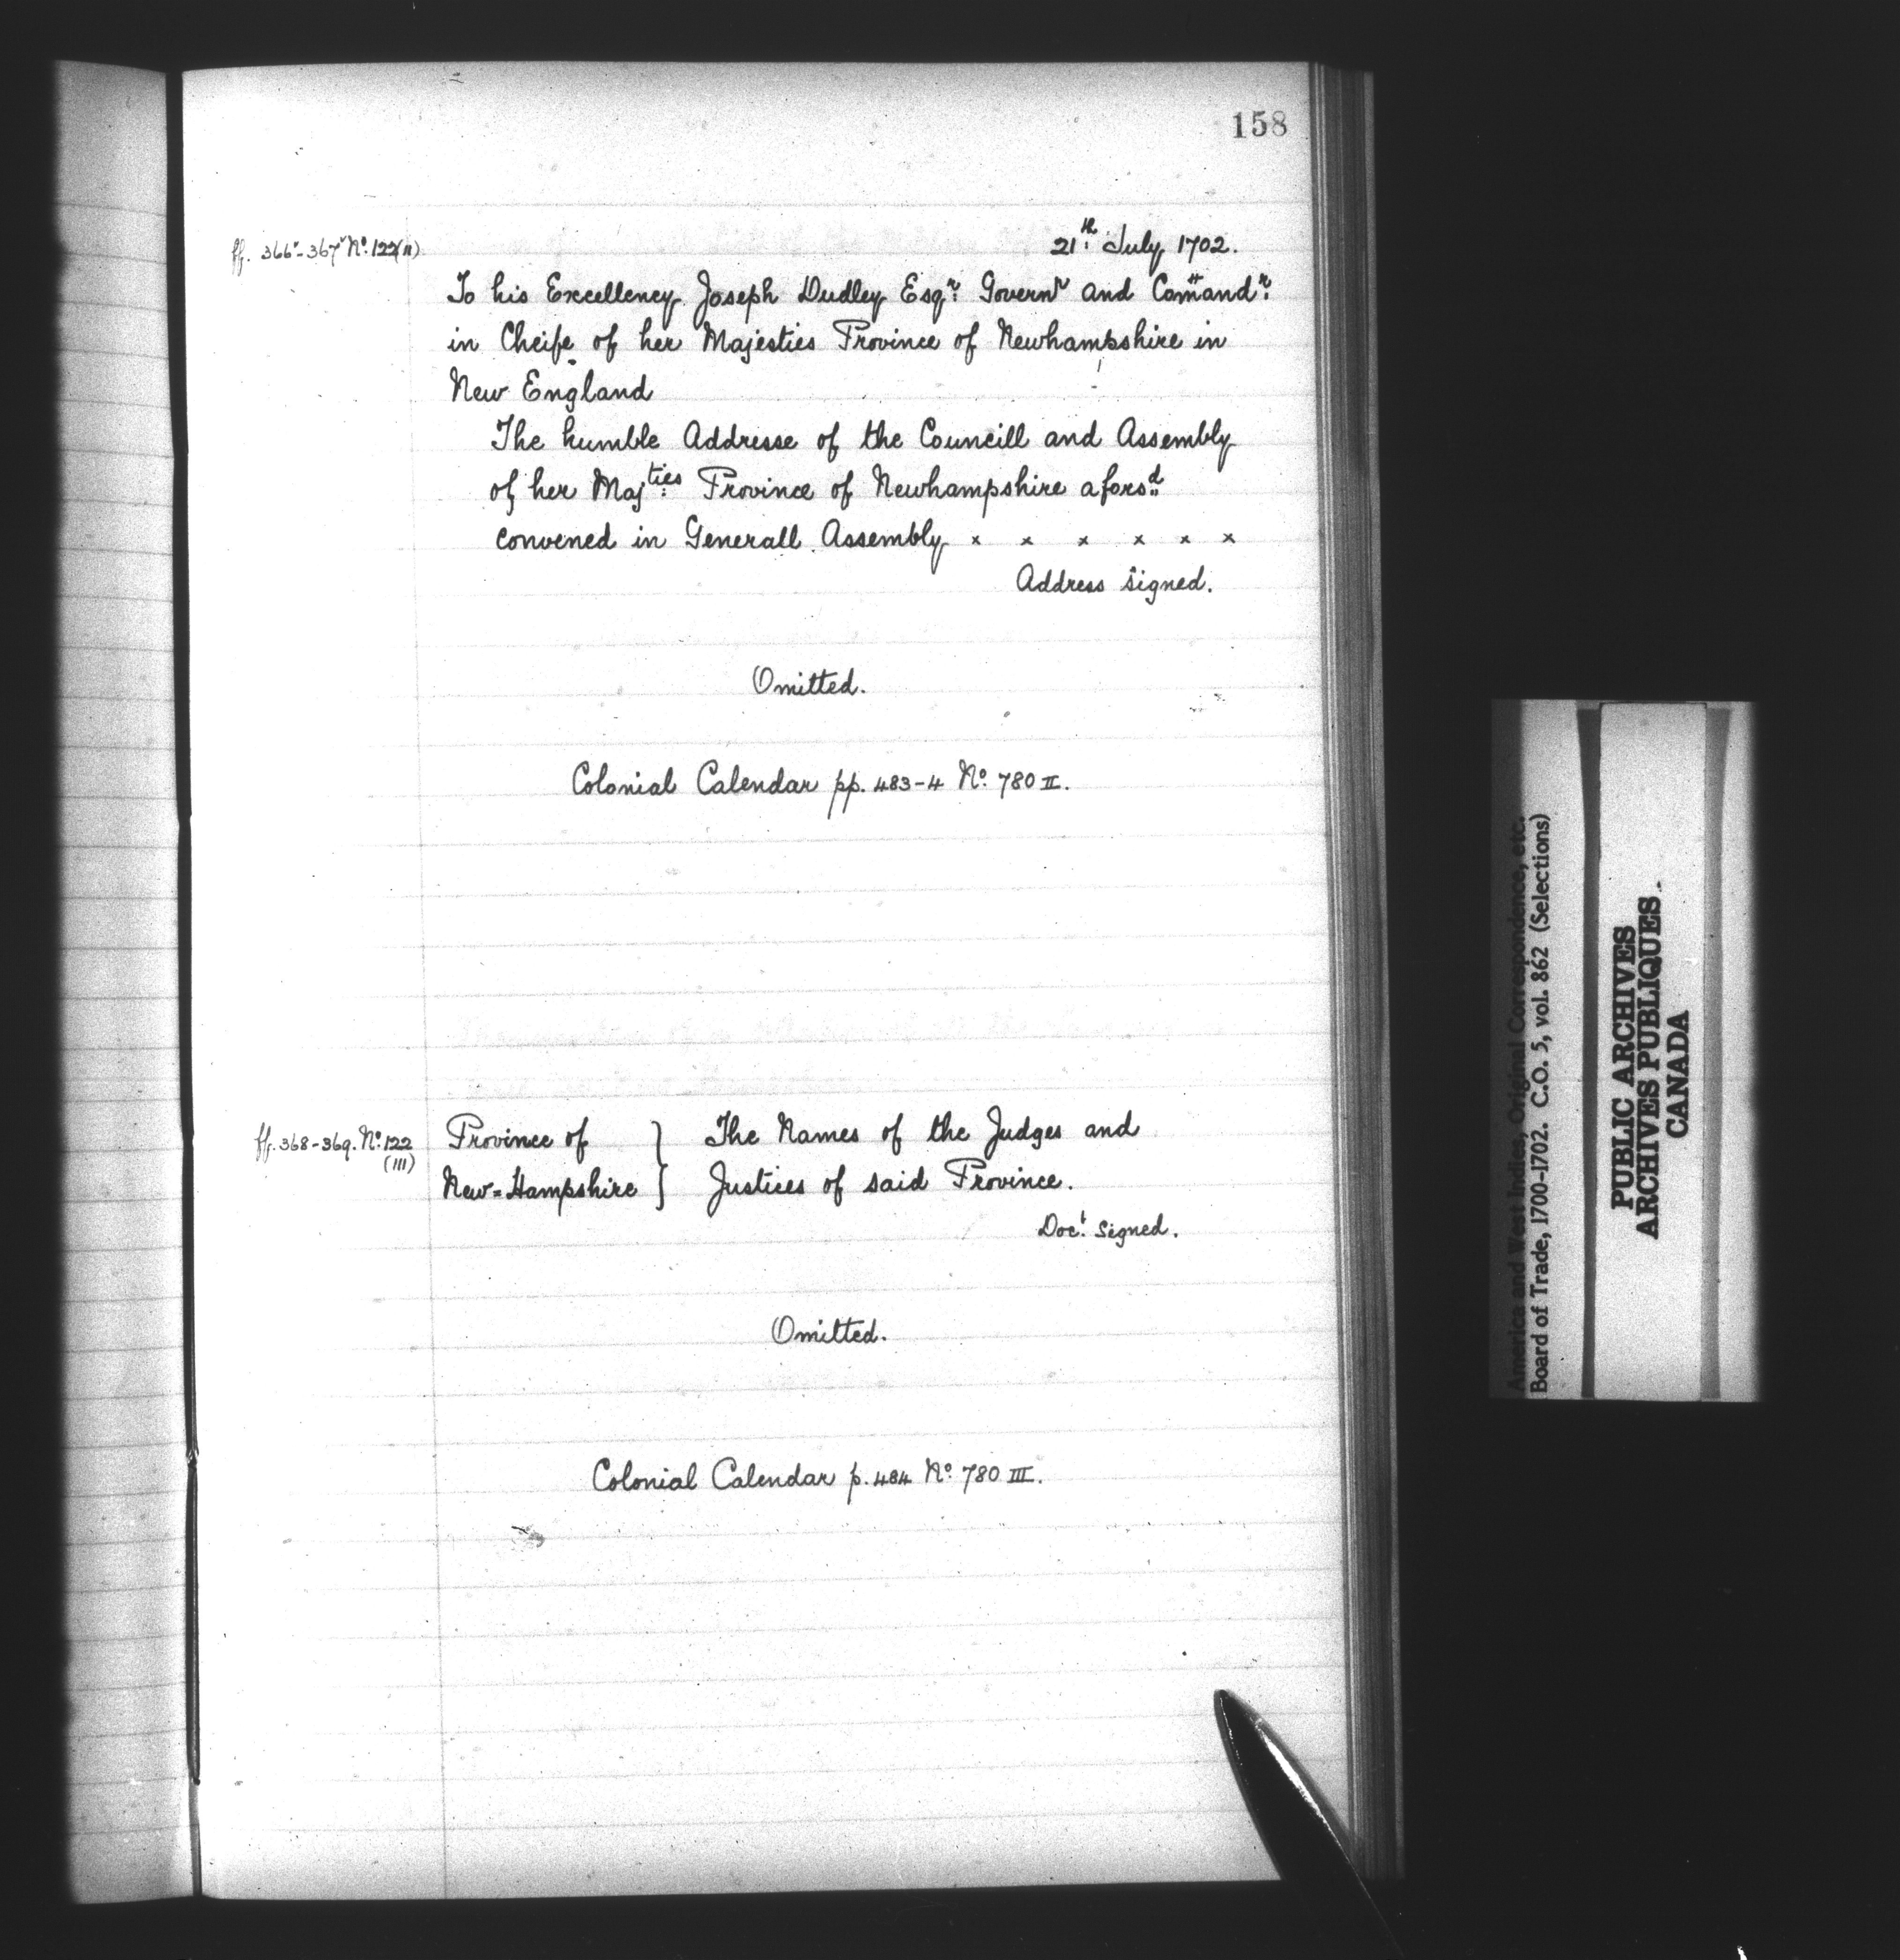 158
ff. 366ᵛ-367ᵛ Nº. 122(II)
21th. July 1702.
To his Excellency Joseph Dudley Esqr: Governr and Comandr:
in Cheife of her Majesties Province of Newhampshire in
New England
The humble Addresse of the Councill and Assembly
of her Majties: Province of Newhampshire aforsd:
convened in Generall Assembly x x x x x x
Address signed.
Omitted.
Colonial Calendar pp. 483-4 Nº. 780 II.
ff. 368-369. Nº. 122
(III)
Province of } The Names of the Judges and
New=Hampshire } Justices of said Province.
Doct. signed.
Omitted.
Colonial Calendar p. 484 Nº. 780 III.
America and West Indies, Original Correspondence, etc.
Board of Trade, 1700-1702. C.O. 5, vol. 862 (Selections)
PUBLIC ARCHIVES
ARCHIVES PUBLIQUES
CANADA